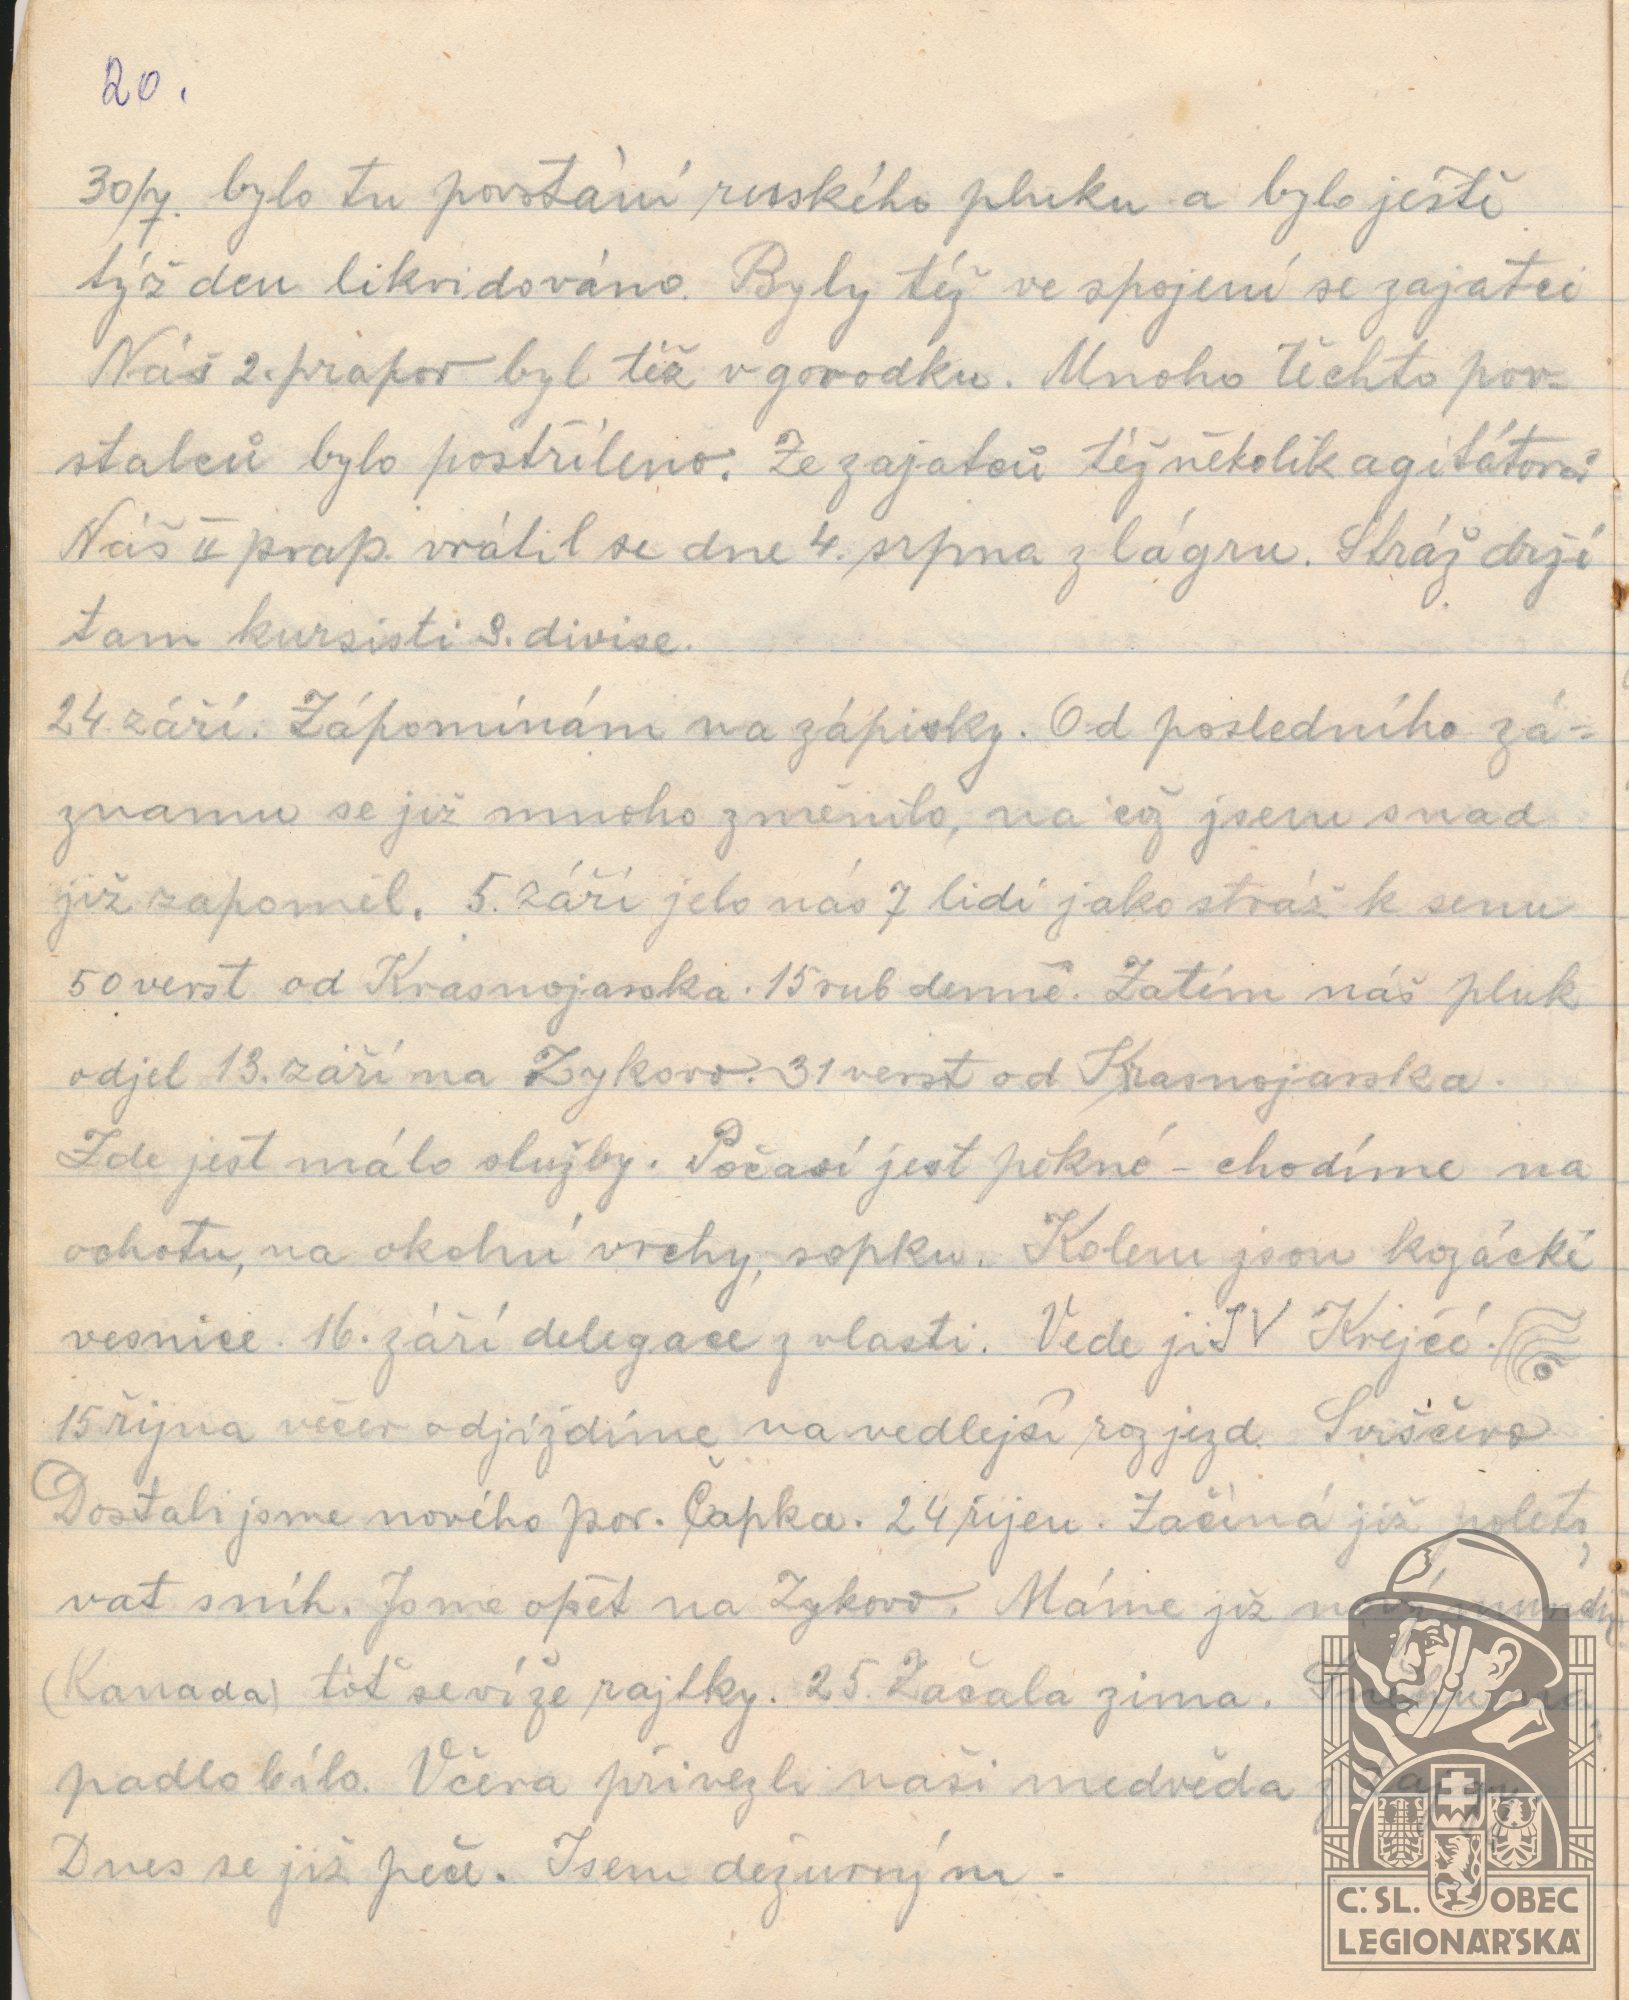 20.
30/7. bylo tu povstání ruského pluku a bylo ještě
týž den likvidováno. Byly též ve spojení se zajatci
Náš 2. prapor byl též v gorodku. Mnoho těchto pov-
stalců bylo postříleno. Ze zajatců též několik agitátorů
Náš II prap. vrátil se dne 4. srpna z lágru. Stráž drží
tam kursisti 3. divise.
24. září. Zápomínám na zápisky. Od posledního zá-
znamu se již mnoho změnilo, na což jsem snad
již zapoměl. 5. září jelo nás 7 lidí jako stráž k senu
50 verst od Krasnojarska. 15 rub denně. Zatím náš pluk
odjel 13. září na Zykovo. 31 verst od Krasnojarska.
Zde jest málo služby. Počasí jest pěkné - chodíme na
ochotu, na okolní vrchy, sopku. Kolem jsou kozácké
vesnice. 16. září delegace z vlasti. Vede ji Krejčí.
15 října večer odjíždíme na vedlejší rozjezd. Sviščevo
Dostali jsme nového por. Čapka. 24 říjen. Začíná již poleto-
vat sníh. Jsme opět na Zykovo. Máme již nové mundůry
(Kanada) totiž rajtky. 25. Začala zima. Sněhu na-
padlo bílo. Včera přivezli naši medvěda z tajgy.
Dnes se již peče. Jsem dežurným.
Č. SL. OBEC
LEGIONÁŘSKÁ